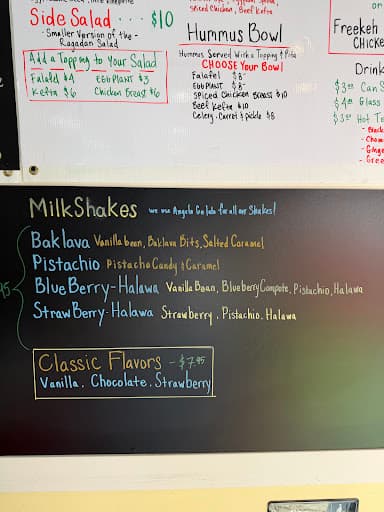 Side Salad ··· $10
- Smaller Version of the -
Ragadan Salad
Add a Topping to Your Salad
Falafel $4 EGGPLANT $3
Kefta $6 Chicken Breast $6
Spiced Chicken, Beef Kefta
Hummus Bowl
Hummus Served With a Topping & Pita
CHOOSE Your Bowl
Falafel $8-
EGGPLANT $8-
SPICED Chicken Breast $10
Beef Kefta $10
Celery, Carrot & Pickle $8
or
Freekeh
CHICKE
Drink
$3.00 Can S
$4.00 Glass
$3.50 Hot Te
- Black
- Cham
- Ginge
- Gree
MilkShakes we use Angelo Gelato for all our Shakes!
Baklava Vanilla bean, Baklava Bits, Salted Caramel
Pistachio Pistachio Candy & Caramel
BlueBerry-Halawa Vanilla Bean, Blueberry Compote, Pistachio, Halawa
StrawBerry-Halawa Strawberry, Pistachio, Halawa
95-
Classic Flavors - $7.95
Vanilla, Chocolate, Strawberry